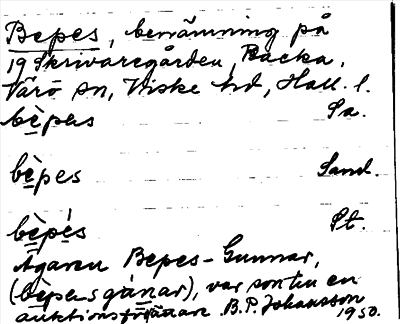 Bepes, benämning på
19 Skrivaregården, Backa,
Värö sn, Viske hd, Hall. l.
bèpes Sa.
bèpes Sand.
bèpés St.
Ägaren Bepes-Gunnar,
(bèpes gùnar), var son till en
auktionsförrättare. B.P. Johansson
1950.